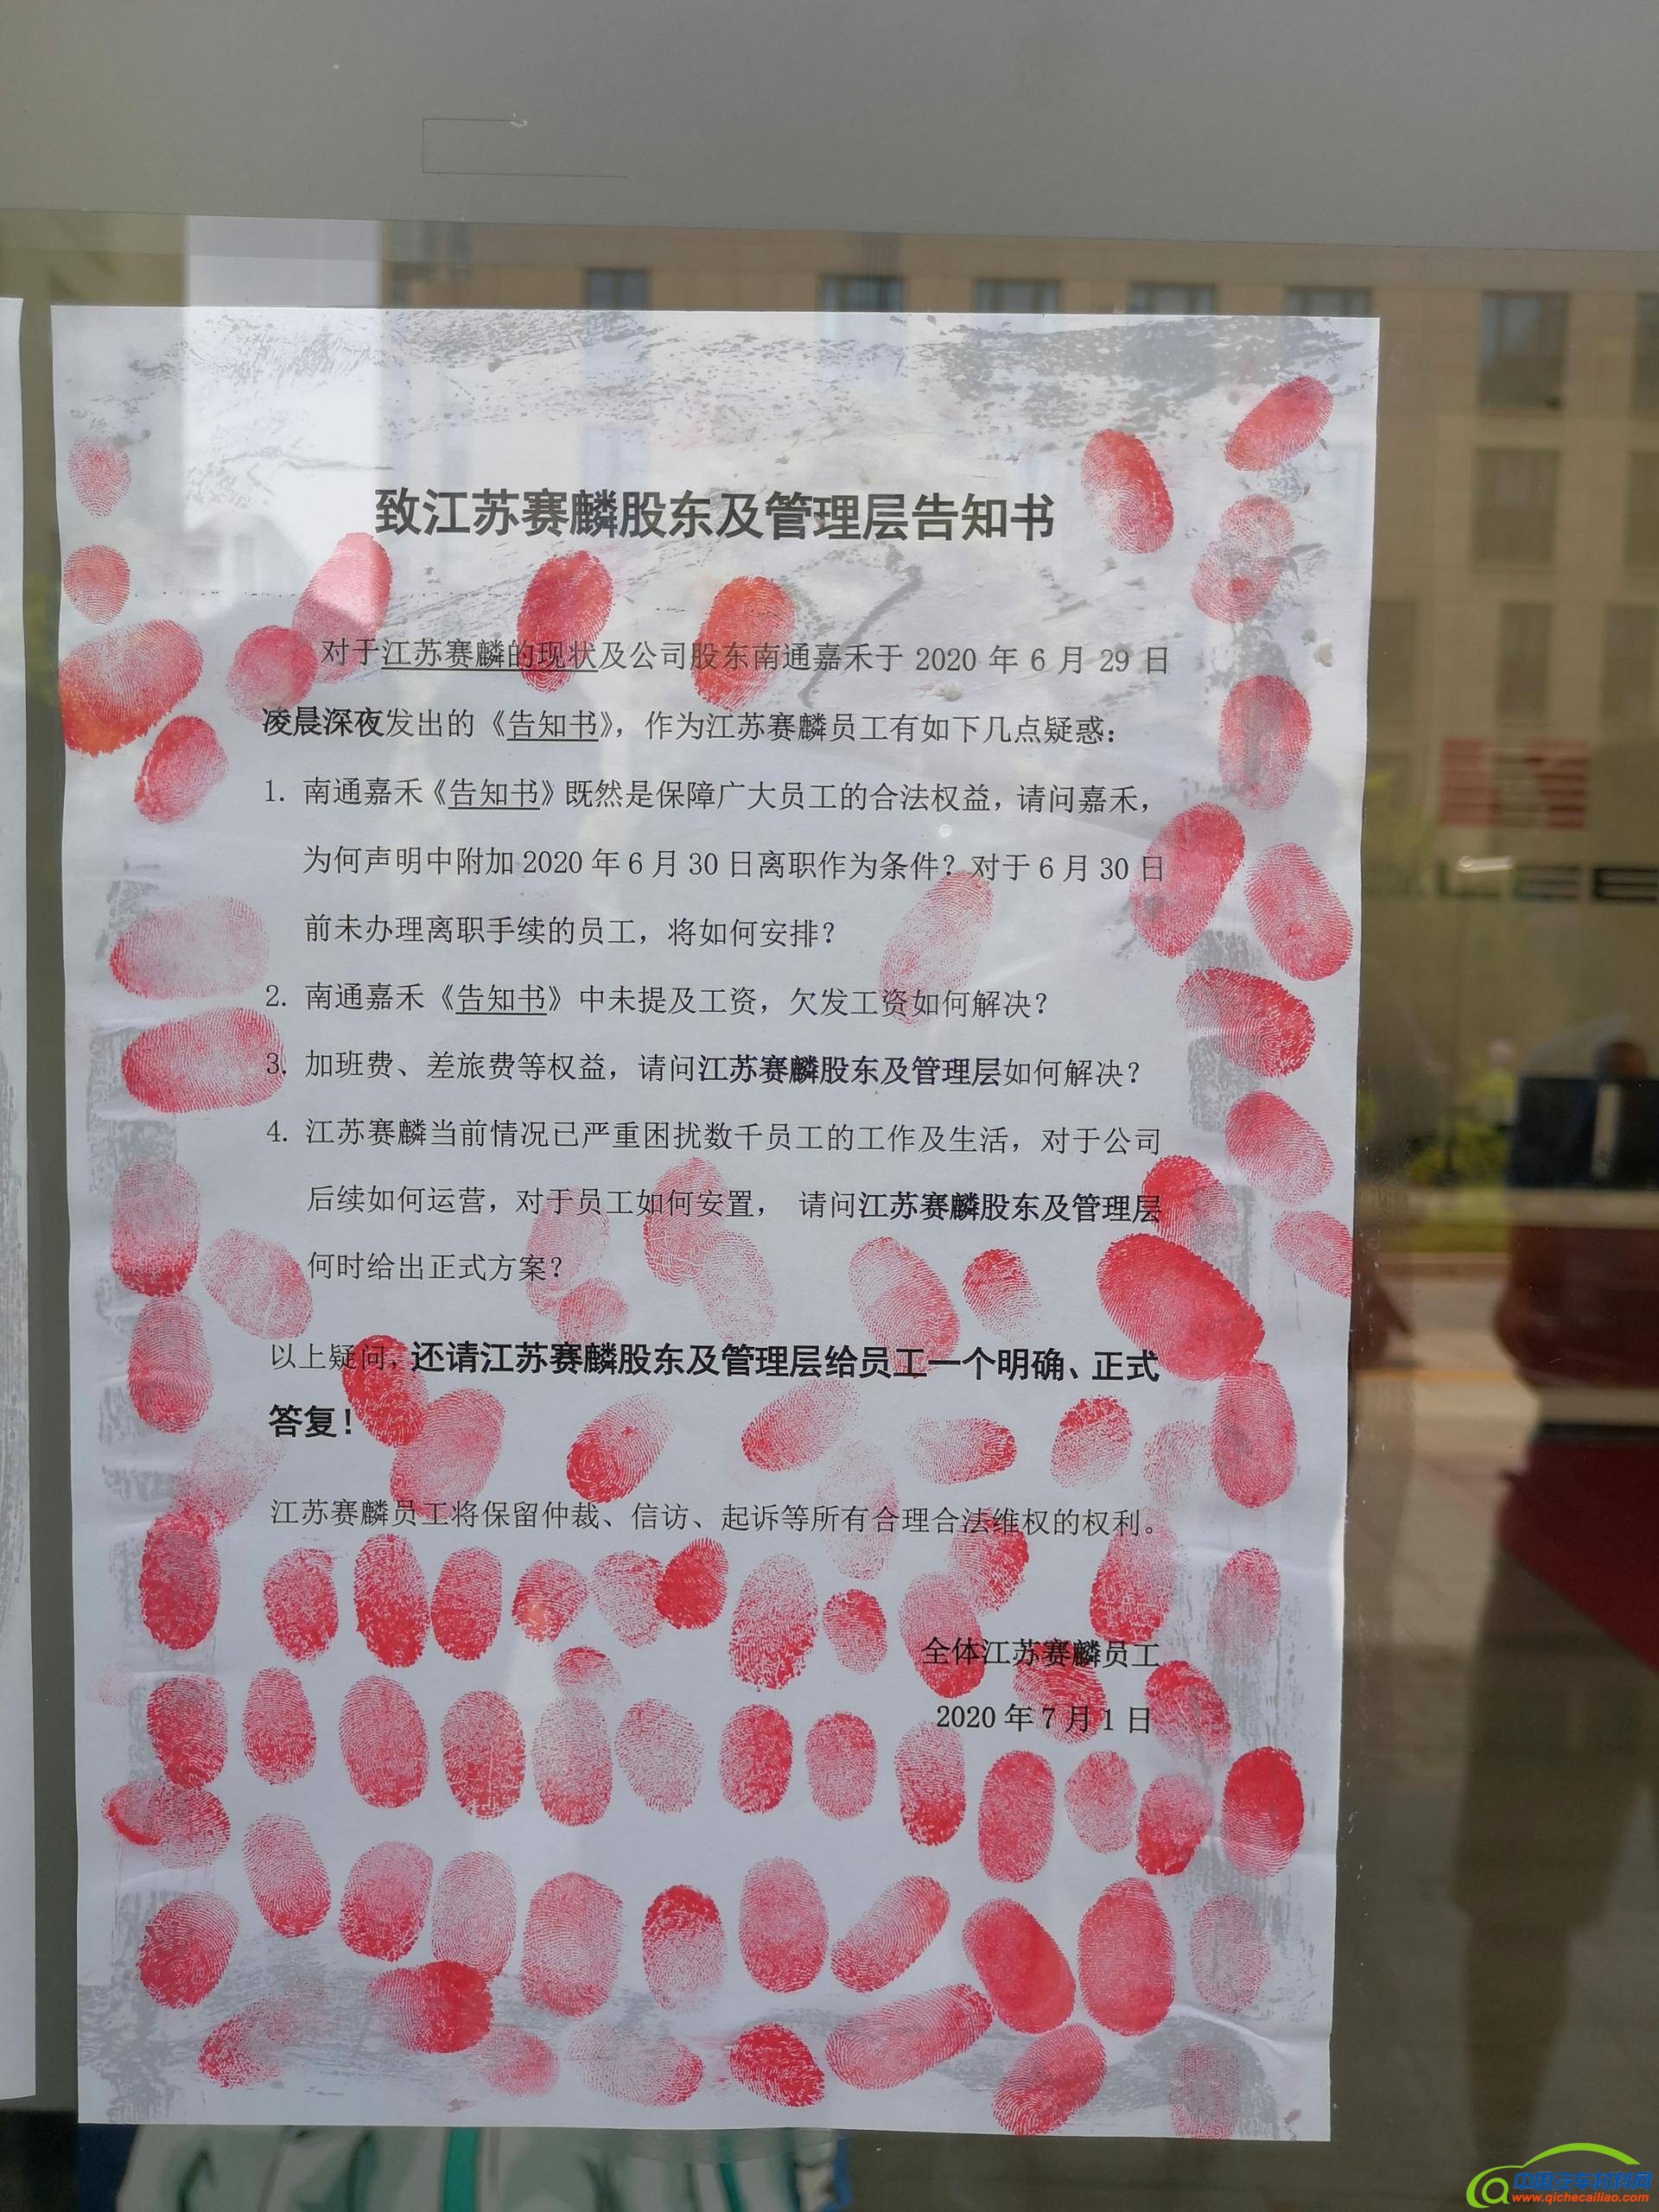 致江苏赛麟股东及管理层告知书
对于江苏赛麟的现状及公司股东南通嘉禾于 2020 年 6 月 29 日
凌晨深夜发出的《告知书》，作为江苏赛麟员工有如下几点疑惑：
1. 南通嘉禾《告知书》既然是保障广大员工的合法权益，请问嘉禾，
为何声明中附加 2020 年 6 月 30 日离职作为条件？对于 6 月 30 日
前未办理离职手续的员工，将如何安排？
2. 南通嘉禾《告知书》中未提及工资，欠发工资如何解决？
3. 加班费、差旅费等权益，请问江苏赛麟股东及管理层如何解决？
4. 江苏赛麟当前情况已严重困扰数千员工的工作及生活，对于公司
后续如何运营，对于员工如何安置， 请问江苏赛麟股东及管理层
何时给出正式方案？
以上疑问，还请江苏赛麟股东及管理层给员工一个明确、正式
答复！
江苏赛麟员工将保留仲裁、信访、起诉等所有合理合法维权的权利。
全体江苏赛麟员工
2020 年 7 月 1 日
中国汽车材料网
www.qichecailiao.com